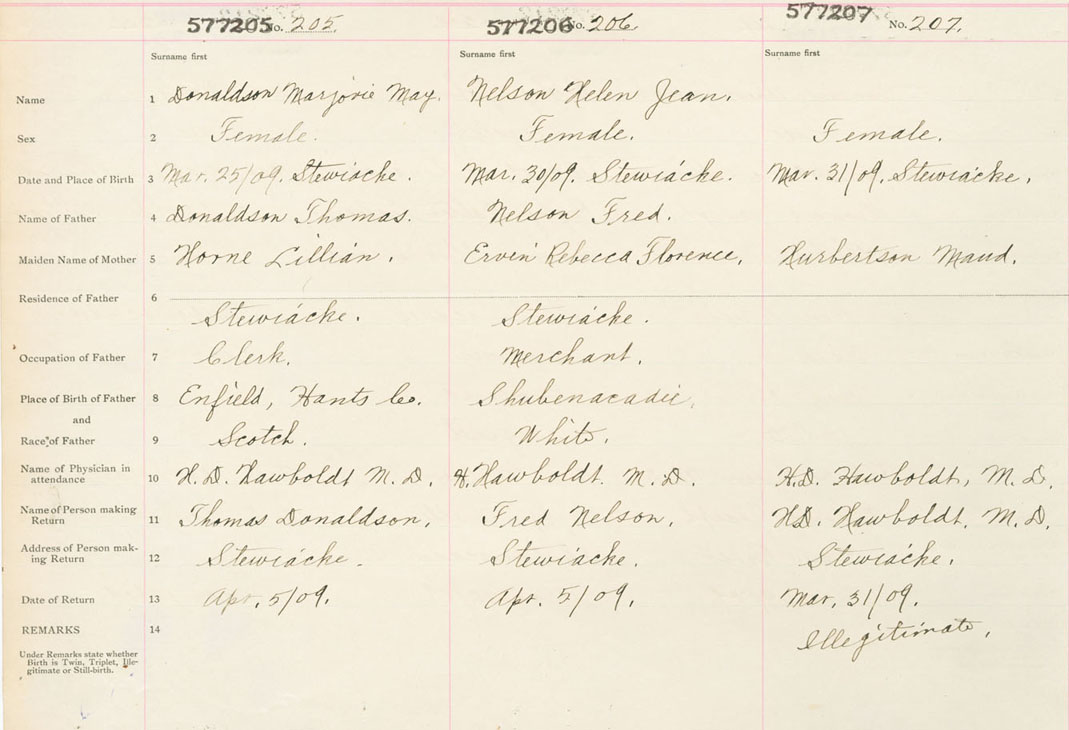 577205 No. 205. 577206 No. 206. 577207 No. 207.
Surname first Surname first Surname first
Name 1 Donaldson Marjorie May. Nelson Helen Jean.
Sex 2 Female. Female. Female.
Date and Place of Birth 3 Mar. 25/09. Stewiacke. Mar. 30/09. Stewiacke. Mar. 31/09. Stewiacke.
Name of Father 4 Donaldson Thomas. Nelson Fred.
Maiden Name of Mother 5 Horne Lillian. Ervin Rebecca Florence. Hurbertson Maud.
Residence of Father 6
Stewiacke. Stewiacke.
Occupation of Father 7 Clerk. Merchant.
Place of Birth of Father 8 Enfield, Hants Co. Shubenacadie.
and
Race of Father 9 Scotch. White.
Name of Physician in
attendance 10 H. D. Hawboldt M. D. H. Hawboldt. M. D. H.D. Hawboldt, M. D.
Name of Person making
Return 11 Thomas Donaldson. Fred Nelson. H.D. Hawboldt. M. D.
Address of Person mak-
ing Return 12 Stewiacke. Stewiacke. Stewiacke.
Date of Return 13 Apr. 5/09. Apr. 5/09. Mar. 31/09.
REMARKS 14 Illegitimate.
Under Remarks state whether
Birth is Twin, Triplet, Ille-
gitimate or Still-birth.